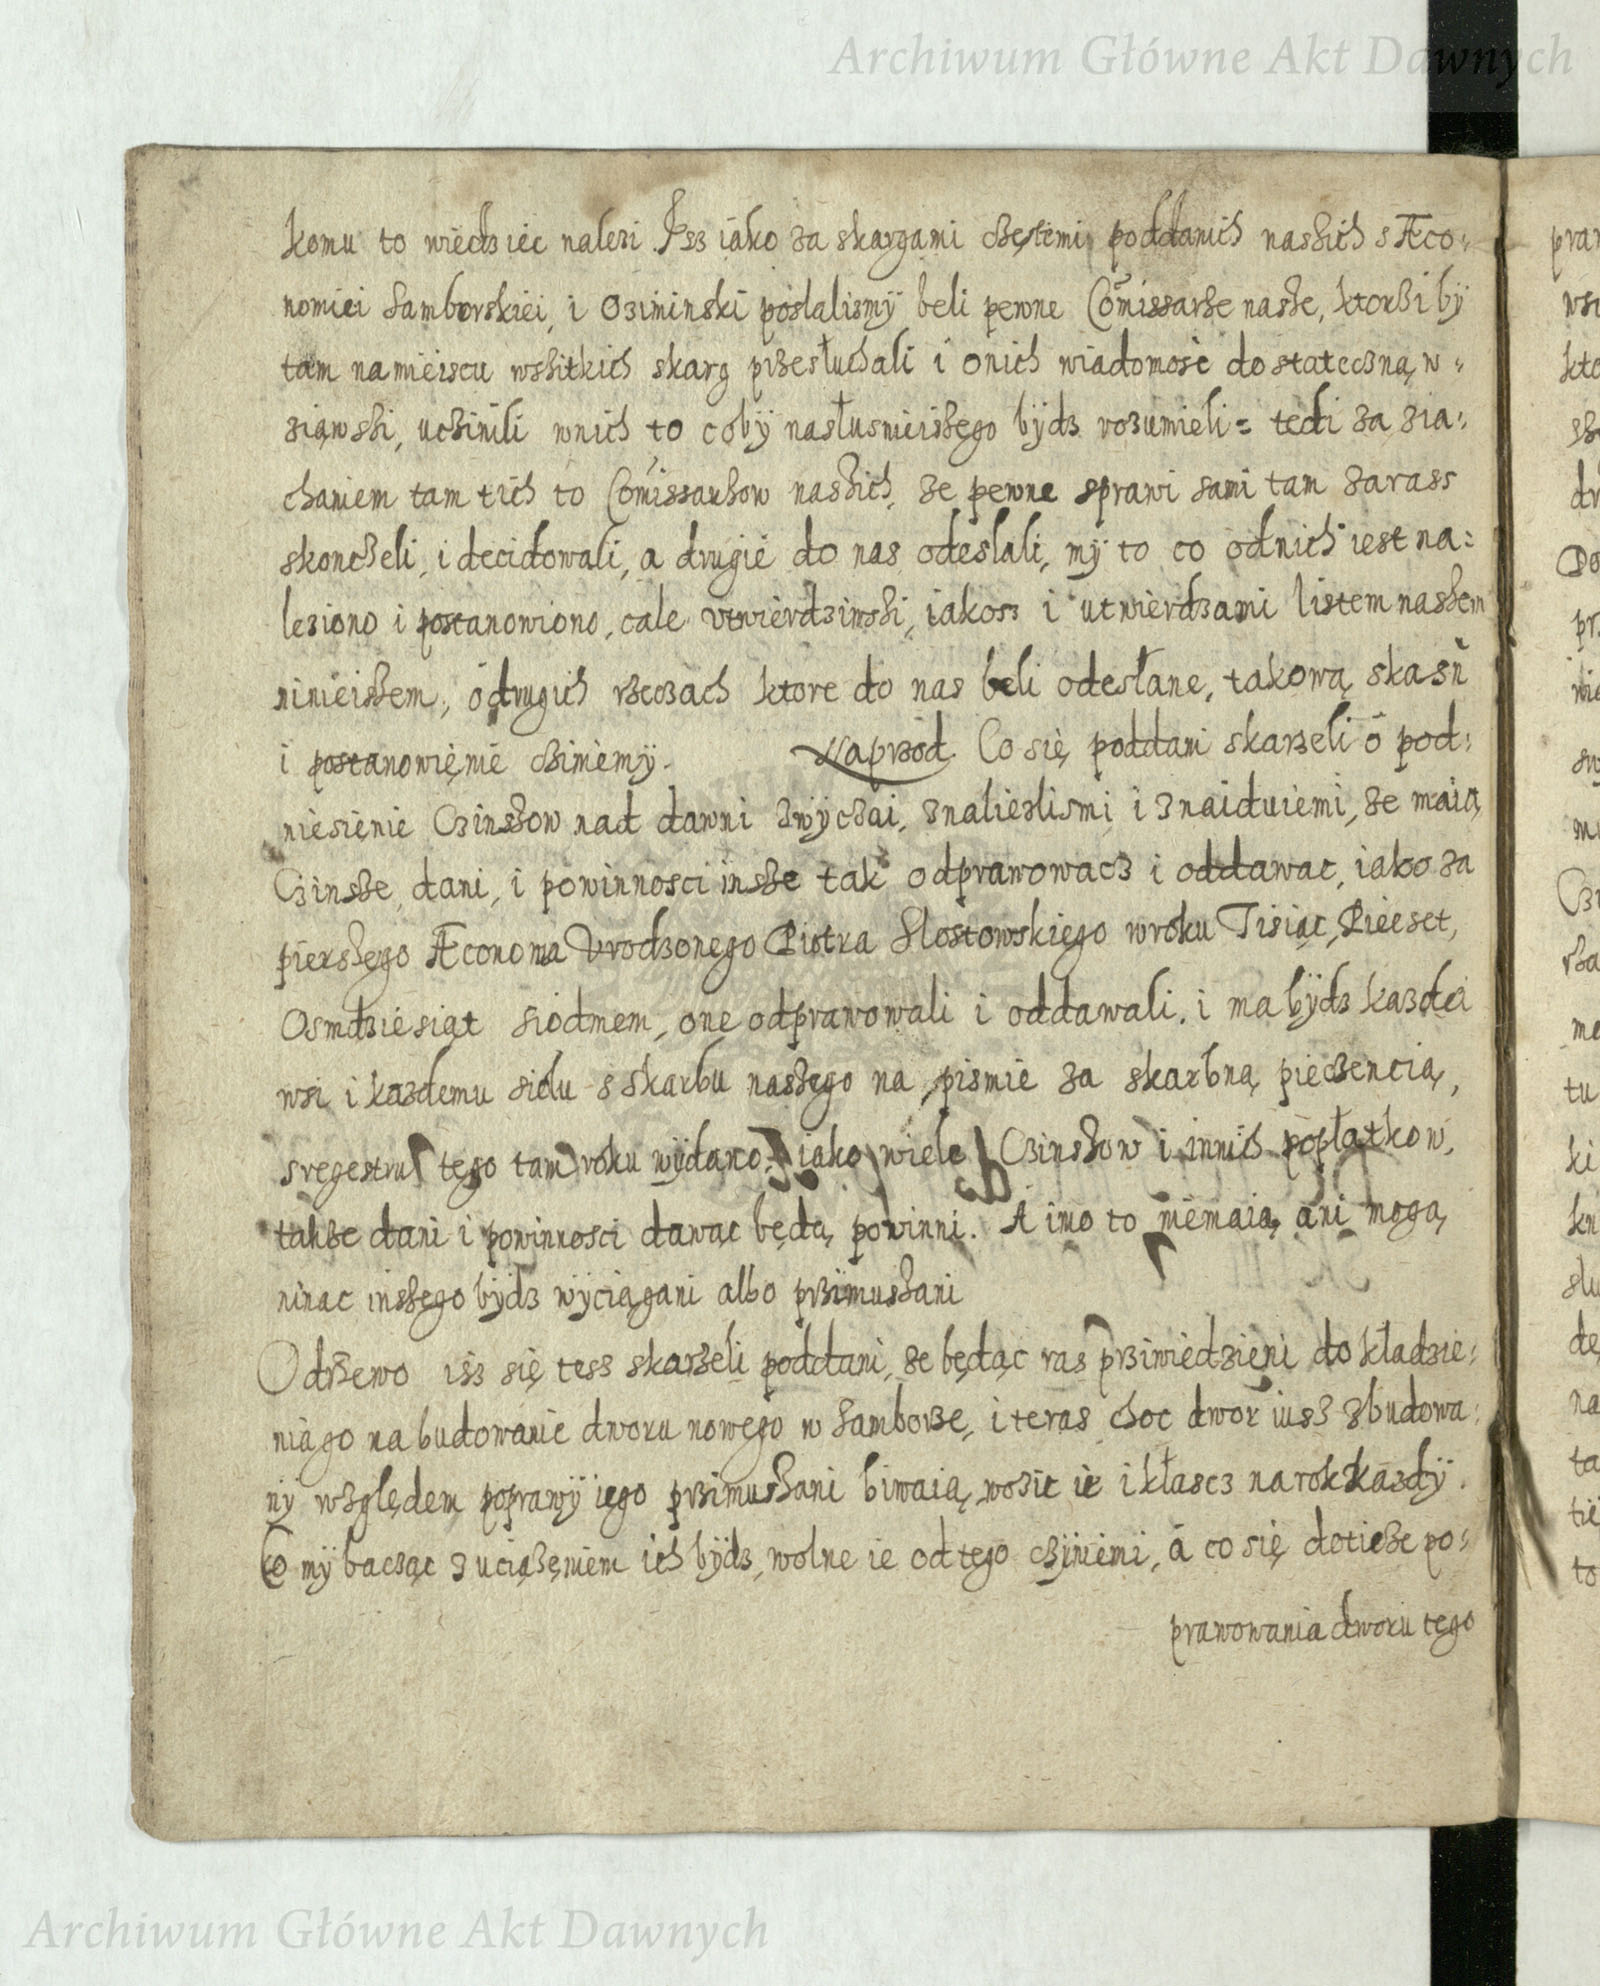 Archiwum Główne Akt Dawnych
komu to wiedziec nalezi. Isz iako za skargami częstemi poddanich naszich s Æco-
nomiei Samborskiei, i Oziminski poslalismÿ beli pewne Com̃issarze nasze, ktorzi bÿ
tam na mieiscu wszitkich skarg przesłuchali i onich wiadomosc dostateczną w-
ziąwszi, uczinili wnich to cobÿ nasłusznieiszego bÿdz rozumieli = tedi za zia-
chaniem tam tich to Com̃issarzow naszich, ze pewne sprawi sami tam zarass
skonczeli, i decidowali, a drugie do nas odeslali, mÿ to co odnich iest na-
leziono i postanowiono, cale utwierdziwszi, iakosz i utwierdzami listem naszem
ninieiszem, o drugich rzeczach ktore do nas beli odesłane, takową skasñ
i postanowięnie czinięmÿ. Naprzod Co się poddani skarzeli o pod-
niesięnie Czinszow nad dawni zwÿczai, znalieslismi i znaiduiemi, ze maią
Czinsze, dani, i powinnosci insze tak odprawowacz i oddawac, iako za
pierszego Æconoma Urodzonego Piotra Slostowskiego wroku Tisiąc, Piecset,
Osmdziesiąt siodmem, one odprawowali i oddawali. i ma bÿdz kazdei
wsi i kazdemu siolu s skarbu naszego na pismie za skarbną pieczencią,
sregestru tego tam roku wÿdano, iako wiele Czinszow i innich popłatkow,
takze dani i powinnosci dawac będą powinni. A imo to niemaią ani mogą
ninac inszego bÿdz wÿciągani albo przimuszani
O drzewo isz się tesz skarzeli poddani, ze będąc ras prziwiedzieni do kładzie-
nia go na budowanie dworu nowego w Samborze, i teras choc dwor iusz zbudowa-
ny względem poprawÿ iego przimuszani biwaią wozic ie i kłascz na rok kazdÿ.
Co mÿ bacząc z uciązęniem ich bÿdz, wolne ie od tego czÿniemi, a co się doticze po-
prawowania dworu tego
Archiwum Główne Akt Dawnych